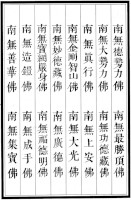 南無德勢力佛　南無最勝頂佛
南無大勢力佛　南無功德藏佛
南無眞行佛　南無上安佛
南無金剛智山佛　南無大光佛
南無妙德藏佛　南無廣德佛
南無寶網嚴身佛　南無福德明佛
南無造鎧佛　南無成手佛
南無善華佛　南無集寶佛